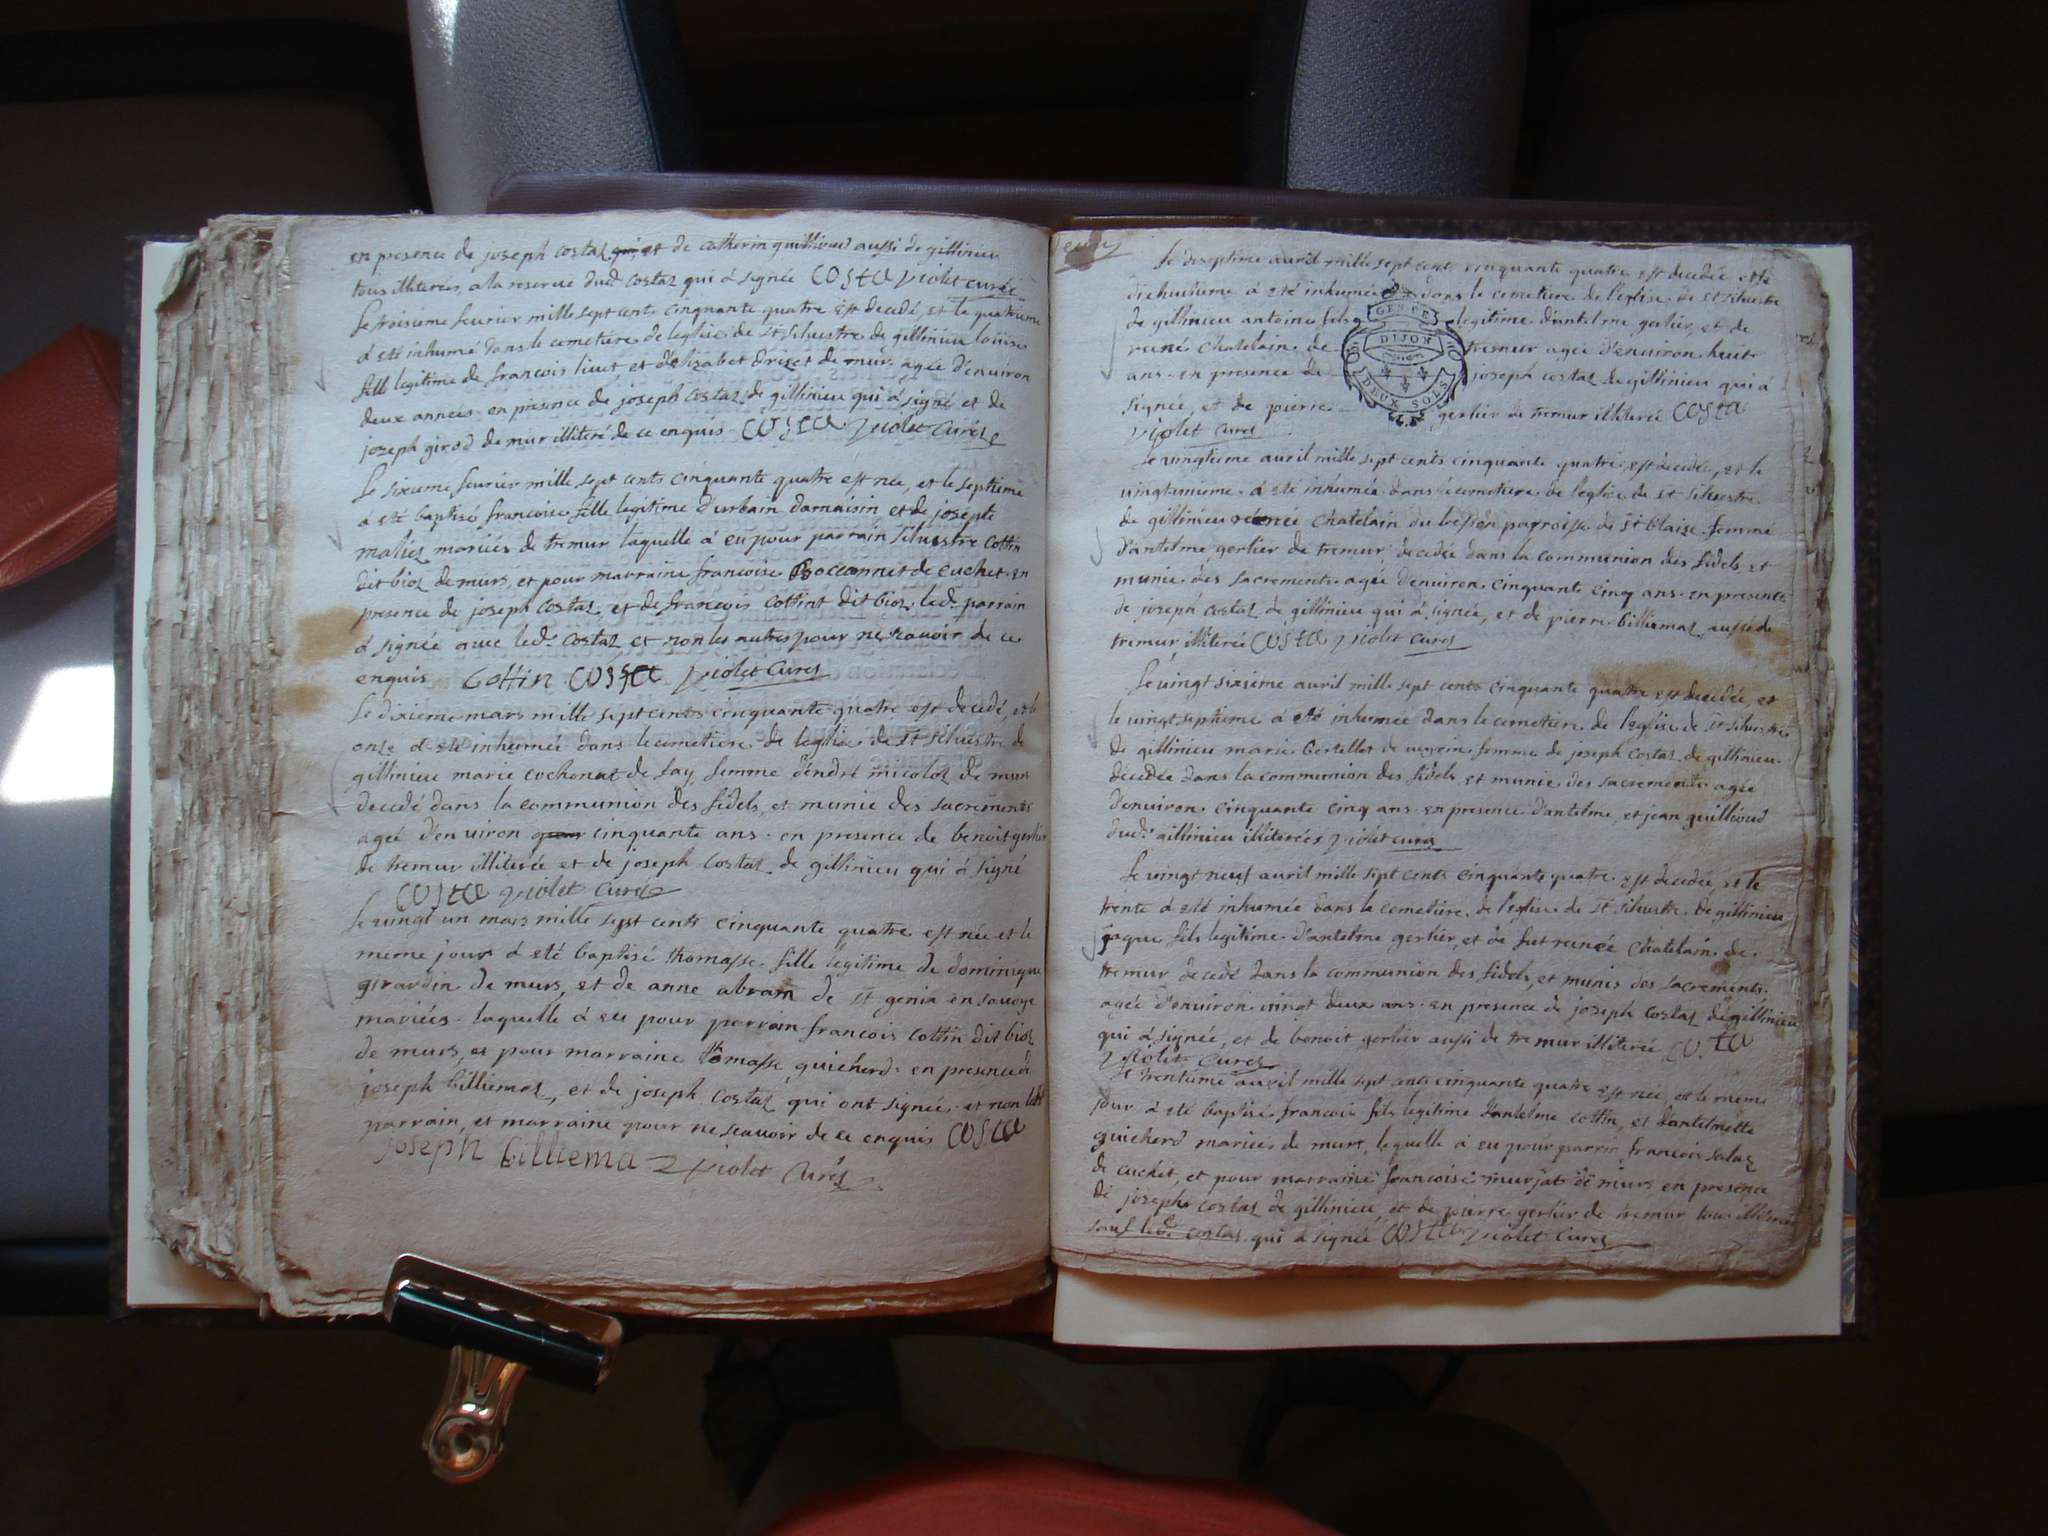 en presence de joseph costaz qui et de catherin quillioud aussi de gillinieu
tous illiterés, a la reserve dud. costaz qui à signée COSTA violet curéz
Le troisieme feurier mille sept cents cinquante quatre est decedé, et la quatrieme
à eté inhumé dans le cemetiere de leglise de st siluestre de gillinieu
fille legitime de francois liuet, et d'elizabet drizet de mur agée d'enuiron
deux annees en presence de joseph costaz de gillinieu qui à signé et de
joseph girod de mur illiteré de ce enquis COSTA violet curéz
Le sixieme feurier mille sept cents cinquante quatre est née, et le septieme
à eté baptisé francoise fille legitime d'urbain damaisin et de josepte
maliez mariés de tremur laquelle à eu pour parrain siluestre cottin
dit bioz de murs, et pour marraine francoise Bocconnet de cuchet en
presence de joseph costaz, et de françois cottint dit bioz led. parrain
à signée auec led. costaz et non les autres pour ne scauoir de ce
enquis Cottin COSTA violet curez
Le dixieme mars mille sept cents cinquante quatre est decedé, et le
onze a eté inhumée dans le cemetiere de leglise de st siluestre de
gillinieu marie cochonat de lay femme d'endré micoloz de murs
decedé dans la communion des fidels, et munie des sacrements
agée d'enuiron cinquante ans en presence de benoit gerlier
de tremur illiterée et de joseph costaz de gillinieu qui à signé
COSTA violet curéz
Le vingt un mars mille sept cents cinquante quatre est née et le
meme jour à eté baptisé thomasse fille legitime de dominique
girardin de murs, et de anne abram de st genix en sauoye
mariés laquelle à eu pour parrain francois cottin dit bioz
de murs, et pour marraine thomasse quicherd en presence de
joseph billiemaz, et de joseph costaz qui ont signée et non led.
parrain, et marraine pour ne scauoir de ce enquis COSTA
joseph billiema violet curéz
Le diseptieme auril mille sept cents cinquante quatre est decedée et le
dixhuitieme à eté inhumée dans le cemetiere de l'eglise de st siluestre
de gillinieu antoine fils legitime d'antelme gerlier, et de
rené chatelain de tremur agée d'enuiron huit
ans en presence de joseph costaz de gillinieu qui à
signée, et de pierre gerlier de tremur illiteré COSTA
violet curez
GEN
DIJON
DEUX SOLS
Le vingtieme auril mille sept cents cinquante quatre est decedée, et le
vingtunieme à eté inhumée dans le cemetiere de l'eglise de st siluestre
de gillinieu renée chatelain du parroisse de st blaise femme
d'antelme gerlier de tremur decedée dans la communion des fidels et
munie des sacrements agée d'enuiron cinquante cinq ans en presente
de joseph costaz de gillinieu qui à signée, et de pierre billiemaz aussi de
tremur illiteré COSTA violet curez
Le vingt sixieme auril mille sept cents cinquante quatre est decedée, et
le vingt septieme à eté inhumée dans le cemetiere de l'eglise de st siluestre
de gillinieu marie bertellet de femme de joseph costaz de gillinieu
decedée dans la communion des fidels et munie des sacrements agée
d'enuiron cinquante cinq ans en presence d'antelme, et jean quillioud
dud. gillinieu illiterées violet curez
Le vingt neuf auril mille sept cents cinquante quatre est decedée, et le
trente à eté inhumée dans le cemetiere de l'eglise de st siluestre de gillinieu
jaque fils legitime d'antelme gerlier, et de fut renée chatelain de
tremur decedé dans la communion des fidels, et munis des sacrements
agée d'enuiron vingt deux ans en presence de joseph costaz de gillinieu
qui à signée, et de benoit gerlier aussi de tremur illiterée COSTA
violet curez
Le trentieme auril mille sept cents cinquante quatre est née et le meme
jour à eté baptisé francois fils legitime d'antelme cottin, et d'antelmette
quicherd mariés de murs, lequelle à eu pour parrin francois salaz
de cuchet, et pour marraine francoise murjat de murs en presence
de joseph costaz de gillinieu, et de pierre gerlier de tremur tous illiterés
sauf led. costaz qui à signée COSTA violet curez